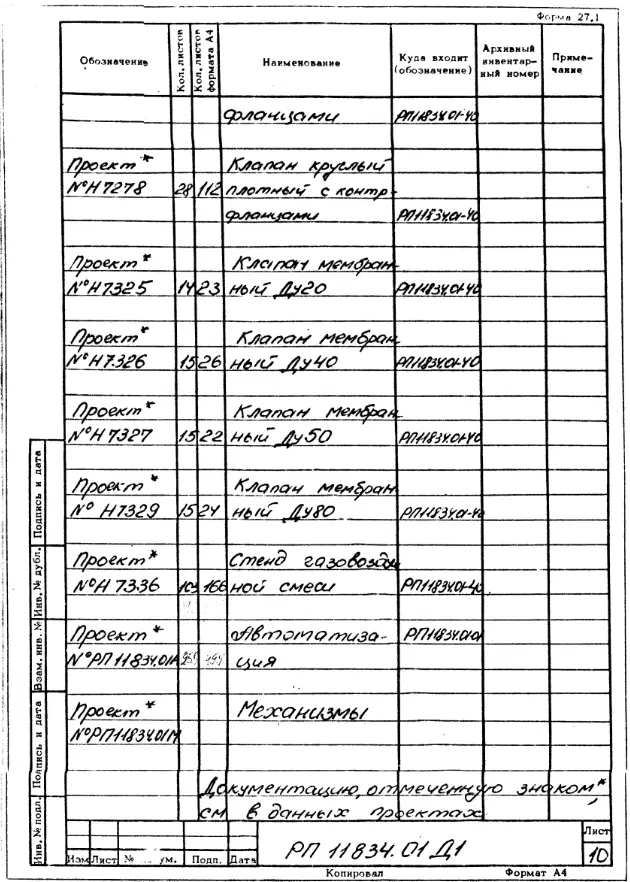 Форма 27.1
Обозначение Кол. листов Кол. листов формата А4 Наименование Куда входит (обозначение) Архивный инвентар-ный номер Приме-чание
фланцами РП11834.01-40
Проект* Клапан круглый
№Н7278 28 112 плотный с контр-
фланцами РП11834.01-40
Проект* Клапан мембран-
№Н7325 14 23 ный Ду20 РП11834.01-40
Проект* Клапан мембран-
№Н7326 15 26 ный Ду40 РП11834.01-40
Проект* Клапан мембран-
№Н7327 15 22 ный Ду50 РП11834.01-40
Проект* Клапан мембран
№ Н7329 15 24 ный Ду80 РП11834.01-40
Проект* Стенд газовоздуш
№Н7336 166 ной смеси РП11834.01-40
Проект* Автоматиза- РП11834.01
№РП11834.01А ция
Проект* Механизмы
№РП11834.01М
Документацию, отмеченную знаком*
см в данных проектах
Инв. № подл. Подпись и дата Взам. инв. № Инв. № дубл. Подпись и дата
Изм Лист № Подп. Дата
РП 11834.01 Д1
Лист
10
Копировал Формат А4